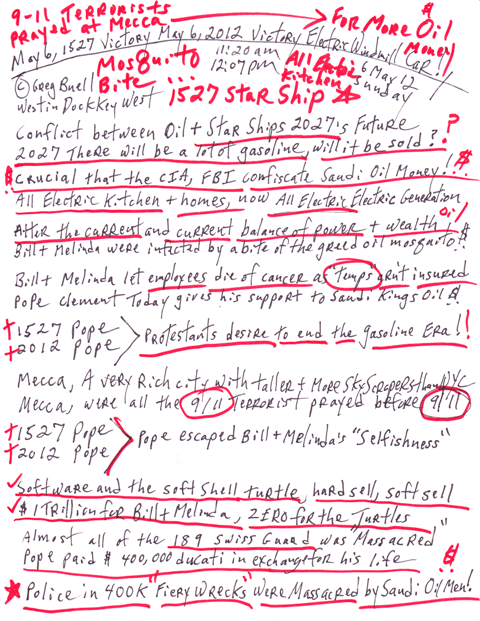 9-11 Terrorists
prayed at Mecca → For More Oil $
Money
May 6, 1527 Victory May 6, 2012 Victory Electric Windmill Car!
11:20 am
12:07 pm
© Greg Buell
Westin Dock Key West
Mosquito
Bite...
All Electric
Kitchen
6 May 12
Sunday
1527 Star Ship
Conflict between Oil + Star Ships 2027's Future
2027 There will be a lot of gasoline, will it be sold??
$ Crucial that the CIA, FBI confiscate Saudi Oil Money!!$
All Electric Kitchen + homes, now All Electric Electric Generation
After the current and current balance of power + wealth! Oil
Bill + Melinda were infected by a bite of the greed oil mosquito!! $
Bill + Melinda let employees die of cancer as "temps" insured
Pope Clement Today gives his support to Saudi Kings Oil $!
+ 1527 Pope
+ 2012 Pope
Protestants desire to end the gasoline Era!!
Mecca, A very Rich city with taller + More Sky Scrapers than NYC
Mecca, were all the 9/11 Terrorist prayed before 9/11
+ 1527 Pope
+ 2012 Pope
Pope escaped Bill + Melinda's "Selfishness"
✓ Software and the soft shell turtle, hard sell, soft sell
✓ $1 Trillion for Bill + Melinda, ZERO for the Turtles
Almost all of the 189 Swiss Guard was "Massacred"
Pope paid $400,000 ducati in exchange for his life $!
★ Police in 400K "Fiery Wrecks" Were Massacred by Saudi Oil Men!